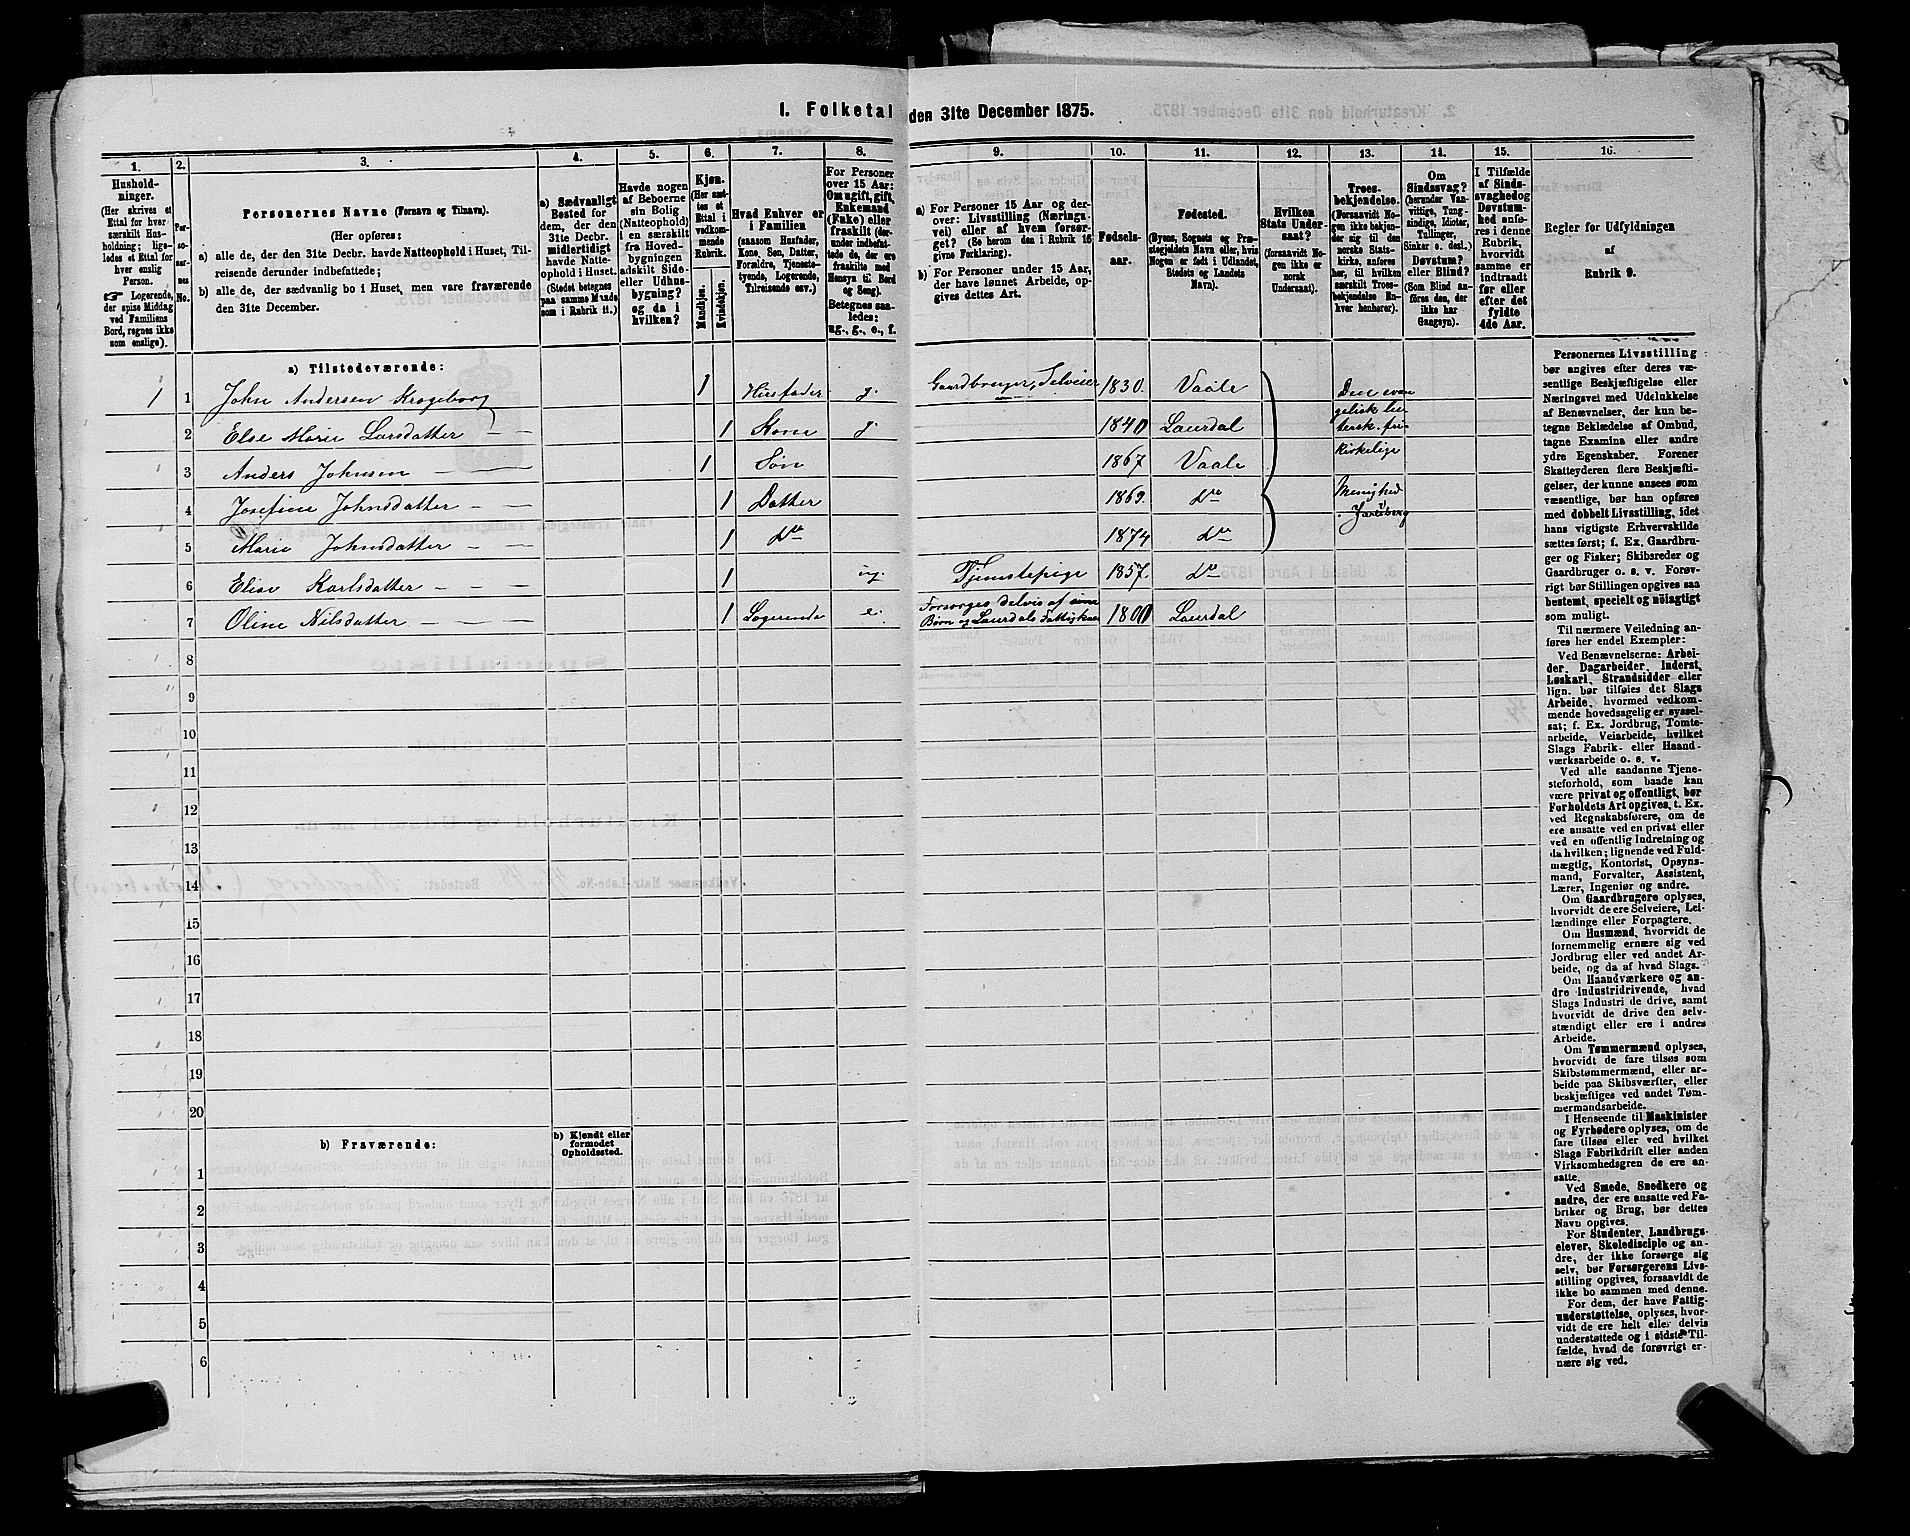 I. Folketal den 31te December 1875.
1. 2. 3. 4. 5. 6. 7. 8. 9. 10. 11. 12. 13. 14. 15. 16.
Hushold-
ninger.
(Her skrives et
Ettal for hver
særskilt Hus-
holdning; lige-
ledes et Ettal for
hver enslig
Person.
☞ Logerende,
der spise Middag
ved Familiens
Bord, regnes ikke
som enslige).
Per-
so-
ner-
nes
No.
Personernes Navne (Fornavn og Tilnavn).
(Her opføres:
a) alle de, der den 31te Decbr. havde Natteophold i Huset, Til-
reisende derunder indbefattede;
b) alle de, der sædvanlig bo i Huset, men vare fraværende
den 31te December.
a) Sædvanligt
Bosted for
dem, der den
31te Decbr.
midlertidigt
havde Natte-
ophold i Huset.
(Stedet betegnes
paa samme Maade
som i Rubrik 11.)
Havde nogen
af Beboerne
sin Bolig
(Natteophold)
i en særskilt
fra Hoved-
bygningen
adskilt Side-
eller Udhus-
bygning?
og da i
hvilken?
Kjøn.
(Her sæt-
tes et
Ettal i
vedkom-
mende
Rubrik.
Mandkjøn.
Kvindekjøn.
Hvad Enhver er
i Familien
(saasom Husfader,
Kone, Søn, Datter,
Forældre, Tjeneste-
tyende, Logerende,
Tilreisende osv.)
For Personer
over 15 Aar:
Om ugift, gift,
Enkemand
(Enke) eller
fraskilt (der-
under indbefat-
tede de, der ere
fraskilte med
Hensyn til Bord
og Seng).
Betegnes saa-
ledes:
ug., g., e., f.
a) For Personer 15 Aar og der-
over: Livsstilling (Nærings-
vei) eller af hvem forsør-
get? (Se herom den i Rubrik 16
givne Forklaring).
b) For Personer under 15 Aar,
der have lønnet Arbeide, op-
gives dettes Art.
Fødsels-
aar.
Fødested.
(Byens, Sognets og Præ-
stegjeldets Navn eller, hvis
Nogen er født i Udlandet,
Stedets og Landets
Navn).
Hvilken
Stats Under-
saat?
(forsaavidt No-
gen ikke er
norsk
Undersaat).
Troes-
bekjendelse.
(Forsaavidt No-
gen ikke bekjen-
der sig til den
norske Stats-
kirke, anføres
her, til hvilken
særskilt Troes-
bekjendelse En-
hver henhører).
Om
Sindssvag?
(herunder Van-
vittige, Tung-
sindige, Idioter,
Tullinger,
Sinker o. desl.)
Døvstum?
eller Blind?
(Som Blind an-
føres den, der
ikke har
Gangsyn).
I Tilfælde
af Sinds-
svaghed og
Døvstum-
hed anfø-
res i denne
Rubrik,
hvorvidt
samme er
indtraadt
før eller
efter det
fyldte
4de Aar.
Regler for Udfyldningen
af
Rubrik 9.
a) Tilstedeværende:
1 1 John Andersen Krogeborg 1 Husfader g. Gaardbruger, Selveier 1830. Vaale Den evan
2 Else Marie Larsdatter — — 1 Kone g 1840 Laurdal gelisk lu-
terske fri-
3 Anders Johnsen — — 1 Søn 1867 Vaale kirkelige
4 Josefine Johnsdatter — — 1 Datter 1869. Do Menighed
Jarlsberg
5 Marie Johnsdatter — — 1 Do 1874 Do
6 Elise Karlsdatter — — 1 ug. Tjenestepige 1857. Do
7 Oline Nilsdatter — — 1 Logerende e. Forsørges delvis af sine
Børn og Laurdals Fattigkasse 1800 Laurdal
8
9
10
11
12
13
14
15
16
17
18
19
20
b) Fraværende:
b) Kjendt eller
formodet
Opholdssted.
1
2
3
4
5
6
Personernes Livsstilling
bør angives efter deres væ-
sentlige Beskjæftigelse eller
Næringsvei med Udelukkelse
af Benævnelser, der kun be-
tegne Beklædelse af Ombud,
tagne Examina eller andre
ydre Egenskaber. Forener
Skatteyderen flere Beskjæfti-
gelser, der kunne ansees som
væsentlige, bør han opføres
med dobbelt Livsstilling, idet
hans vigtigste Erhvervskilde
sættes først; f. Ex. Gaardbru-
ger og Fisker; Skibsreder og
Gaardbruger o. s. v. Forøv-
rigt bør Stillingen opgives saa
bestemt, specielt og nøiagtigt
som muligt.
Til nærmere Veiledning an-
føres her endel Exempler:
Ved Benævnelserne: Arbei-
der, Dagarbeider, Inderst,
Løskarl, Strandsidder eller
lign. bør tilføies det Slags
Arbeide, hvormed vedkom-
mende hovedsagelig er syssel-
sat; f. Ex. Jordbrug, Tomte-
arbeide, Veiarbeide, hvilket
Slags Fabrik- eller Haand-
værksarbeide o. s. v.
Ved alle saadanne Tjene-
steforhold, som baade kan
være privat og offentligt, bør
Forholdets Art opgives, t. Ex.
ved Regnskabsførere, om de
ere ansatte ved en privat eller
ved en offentlig Indretning og
da hvilken; lignende ved Fuld-
mægtig, Kontorist, Opsyns-
mand, Forvalter, Assistent,
Lærer, Ingeniør og andre.
Om Gaardbrugere oplyses,
hvorvidt de ere Selveiere, Lei-
lændinge eller Forpagtere.
Om Husmænd, hvorvidt de
fornemmelig ernære sig ved
Jordbrug eller ved andet Ar-
beide, og da af hvad Slags.
Om Haandværkere og an-
dre Industridrivende, hvad
Slags Industri de drive, samt
hvorvidt de drive den selv-
stændigt eller ere i andres
Arbeide.
Om Tømmermænd oplyses,
hvorvidt de fare tilsøs som
Skibstømmermænd, eller ar-
beide paa Skibsværfter, eller
beskjæftiges ved andet Tøm-
mermandsarbeide.
I Henseende til Maskinister
og Fyrbødere oplyses, om de
fare tilsøs eller ved hvilket
Slags Fabrikdrift eller anden
Virksomhedsgren de ere an-
satte.
Ved Smede, Snedkere og
andre, der ere ansatte ved Fa-
briker og Brug, bør dettes
Navn opgives.
For Studenter, Landbrugs-
elever, Skoledisciple og an-
dre, der ikke forsørge sig
selv, bør Forsørgerens Livs-
stilling opgives, forsaavidt de
ikke bo sammen med denne.
For dem, der have Fattig-
understøttelse, oplyses, hvor-
vidt de ere helt eller delvis
understøttede og i sidste Til-
fælde, hvad de forøvrigt er-
nære sig ved.